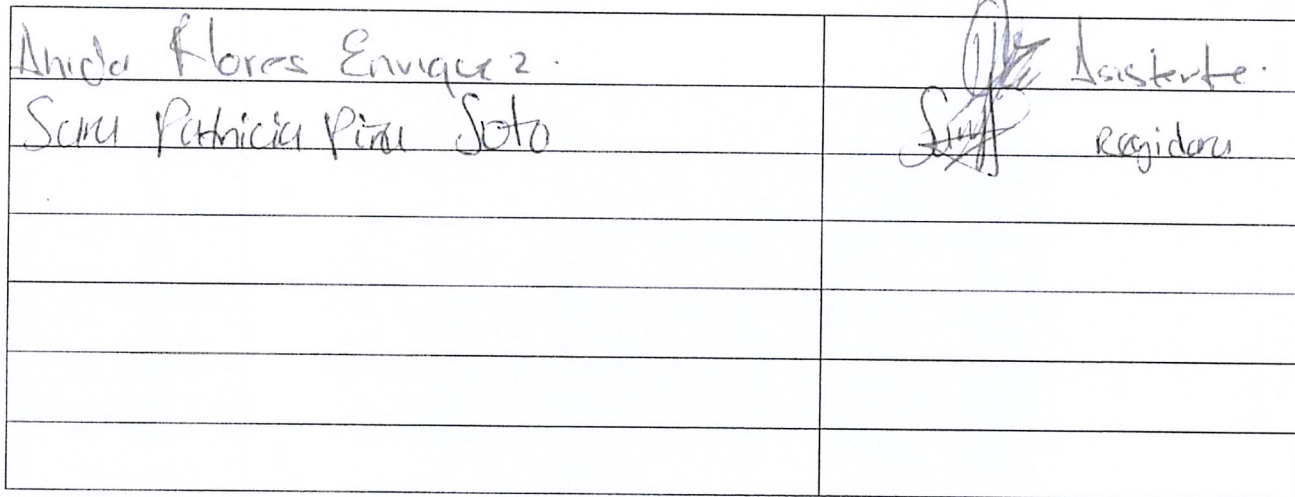 Ahida Flores Enrique z. Asistente.
Sara Patricia Piza Soto Regidora